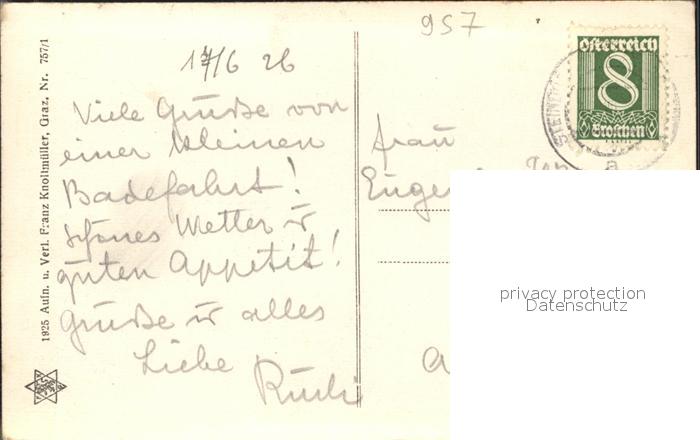 957
17/6 26
Viele Grüße von
einer kleinen
Badefahrt!
schönes Wetter u
guten Appetit!
Grüße u alles
Liebe
Frau
Eugen
Österreich
8
Groschen
STEIN
a
privacy protection
Datenschutz
1925 Aufn. u. Verl. Franz Knollmüller, Graz, Nr. 757/1